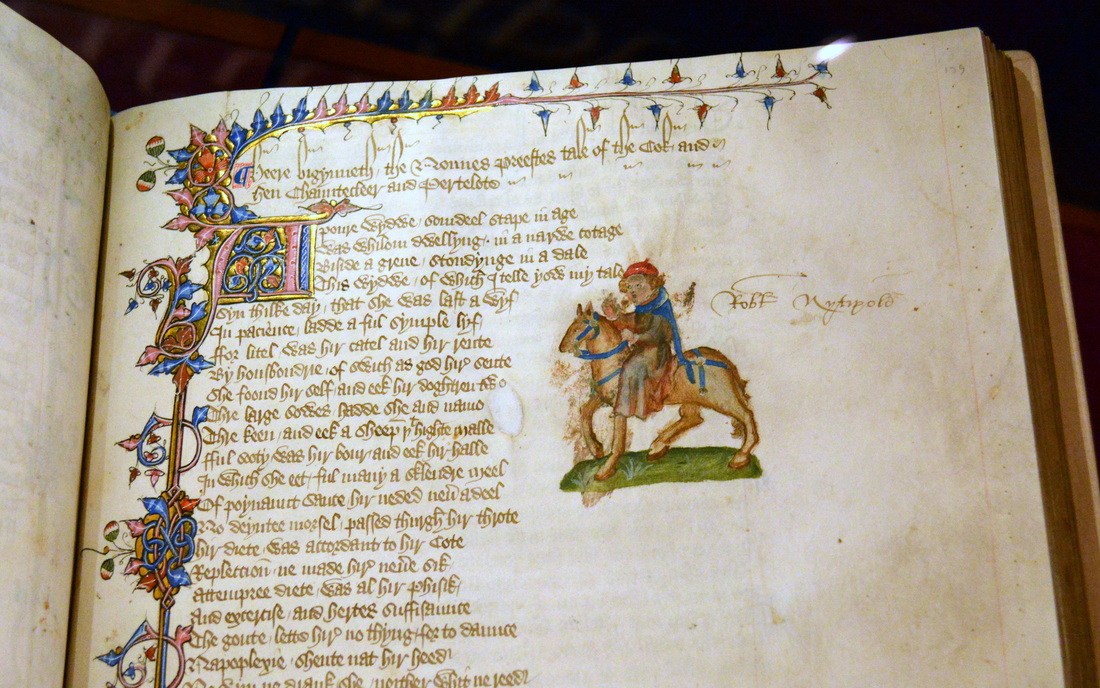 Heere bigynneth / the Nonnes preestes tale of the Cok and
Hen Chauntecleer and Pertelote
A poure wydwe / somdeel stape in age
Was whilom dwellyng / in a narwe cotage
Biside a greue / stondynge in a dale
This wydwe / of which I telle yow my tale
Syn thilke day / that she was last a wyf
In pacience / ladde a ful symple lyf
ffor litel / was hir catel and hir rente
By housbondrie / of swich as god hir sente
She foond hir self / and eek hir doghtren two
Thre large sowes / hadde she and namo
Thre keen / and eek a sheep þt highte malle
fful sooty / was hir bour / and eek hir halle
In which she eet / ful many a sklendre meel
Of poynaunt sauce hir neded neuer a deel
No deyntee morsel / passed thurgh hir throte
hir diete / was accordant to hir cote
Repleccioun / ne made hir neuere sik
attempree diete / was al hir phisik
And excercise / and hertes suffisaunce
The goute / lette hir no thyng / for to daunce
Napoplexie / shente nat hir heed
No wyn ne drank she / neither whit ne reed
Robt